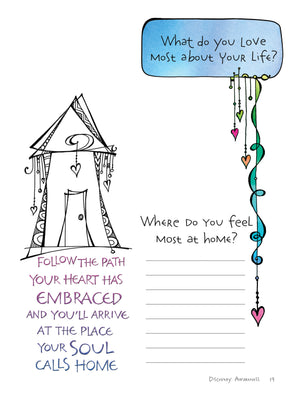 What do you Love
Most about Your Life?
Where do you feel
Most at home?
Follow the path
your heart has
embraced
and you'll arrive
at the place
your soul
calls home
19